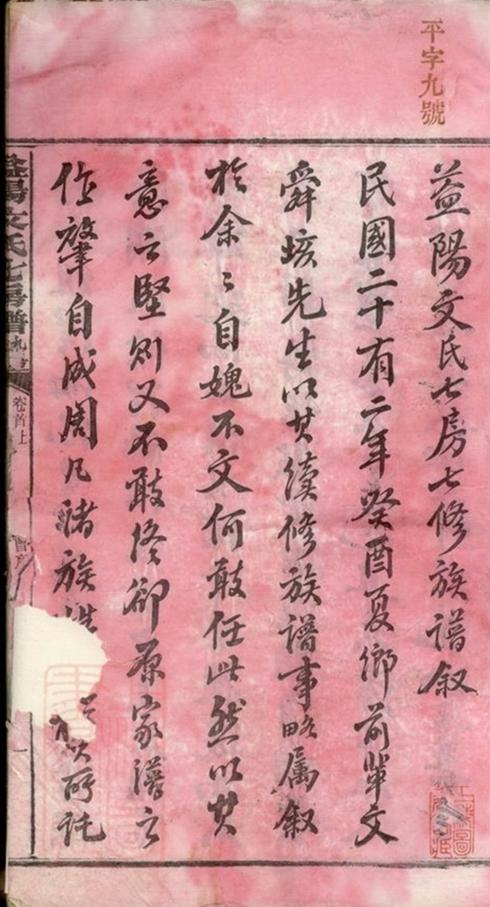 平字九號
益陽文氏七房七修族譜叙
民國二十有二年癸酉夏鄉前輩文
舜垓先生以其續修族譜事略属叙
於余〻自媿不文何敢任此然以其
意之堅則又不敢終卻原家譜之
作肇自成周凡諸族姓 所託
益陽文氏七房譜
卷首上
一